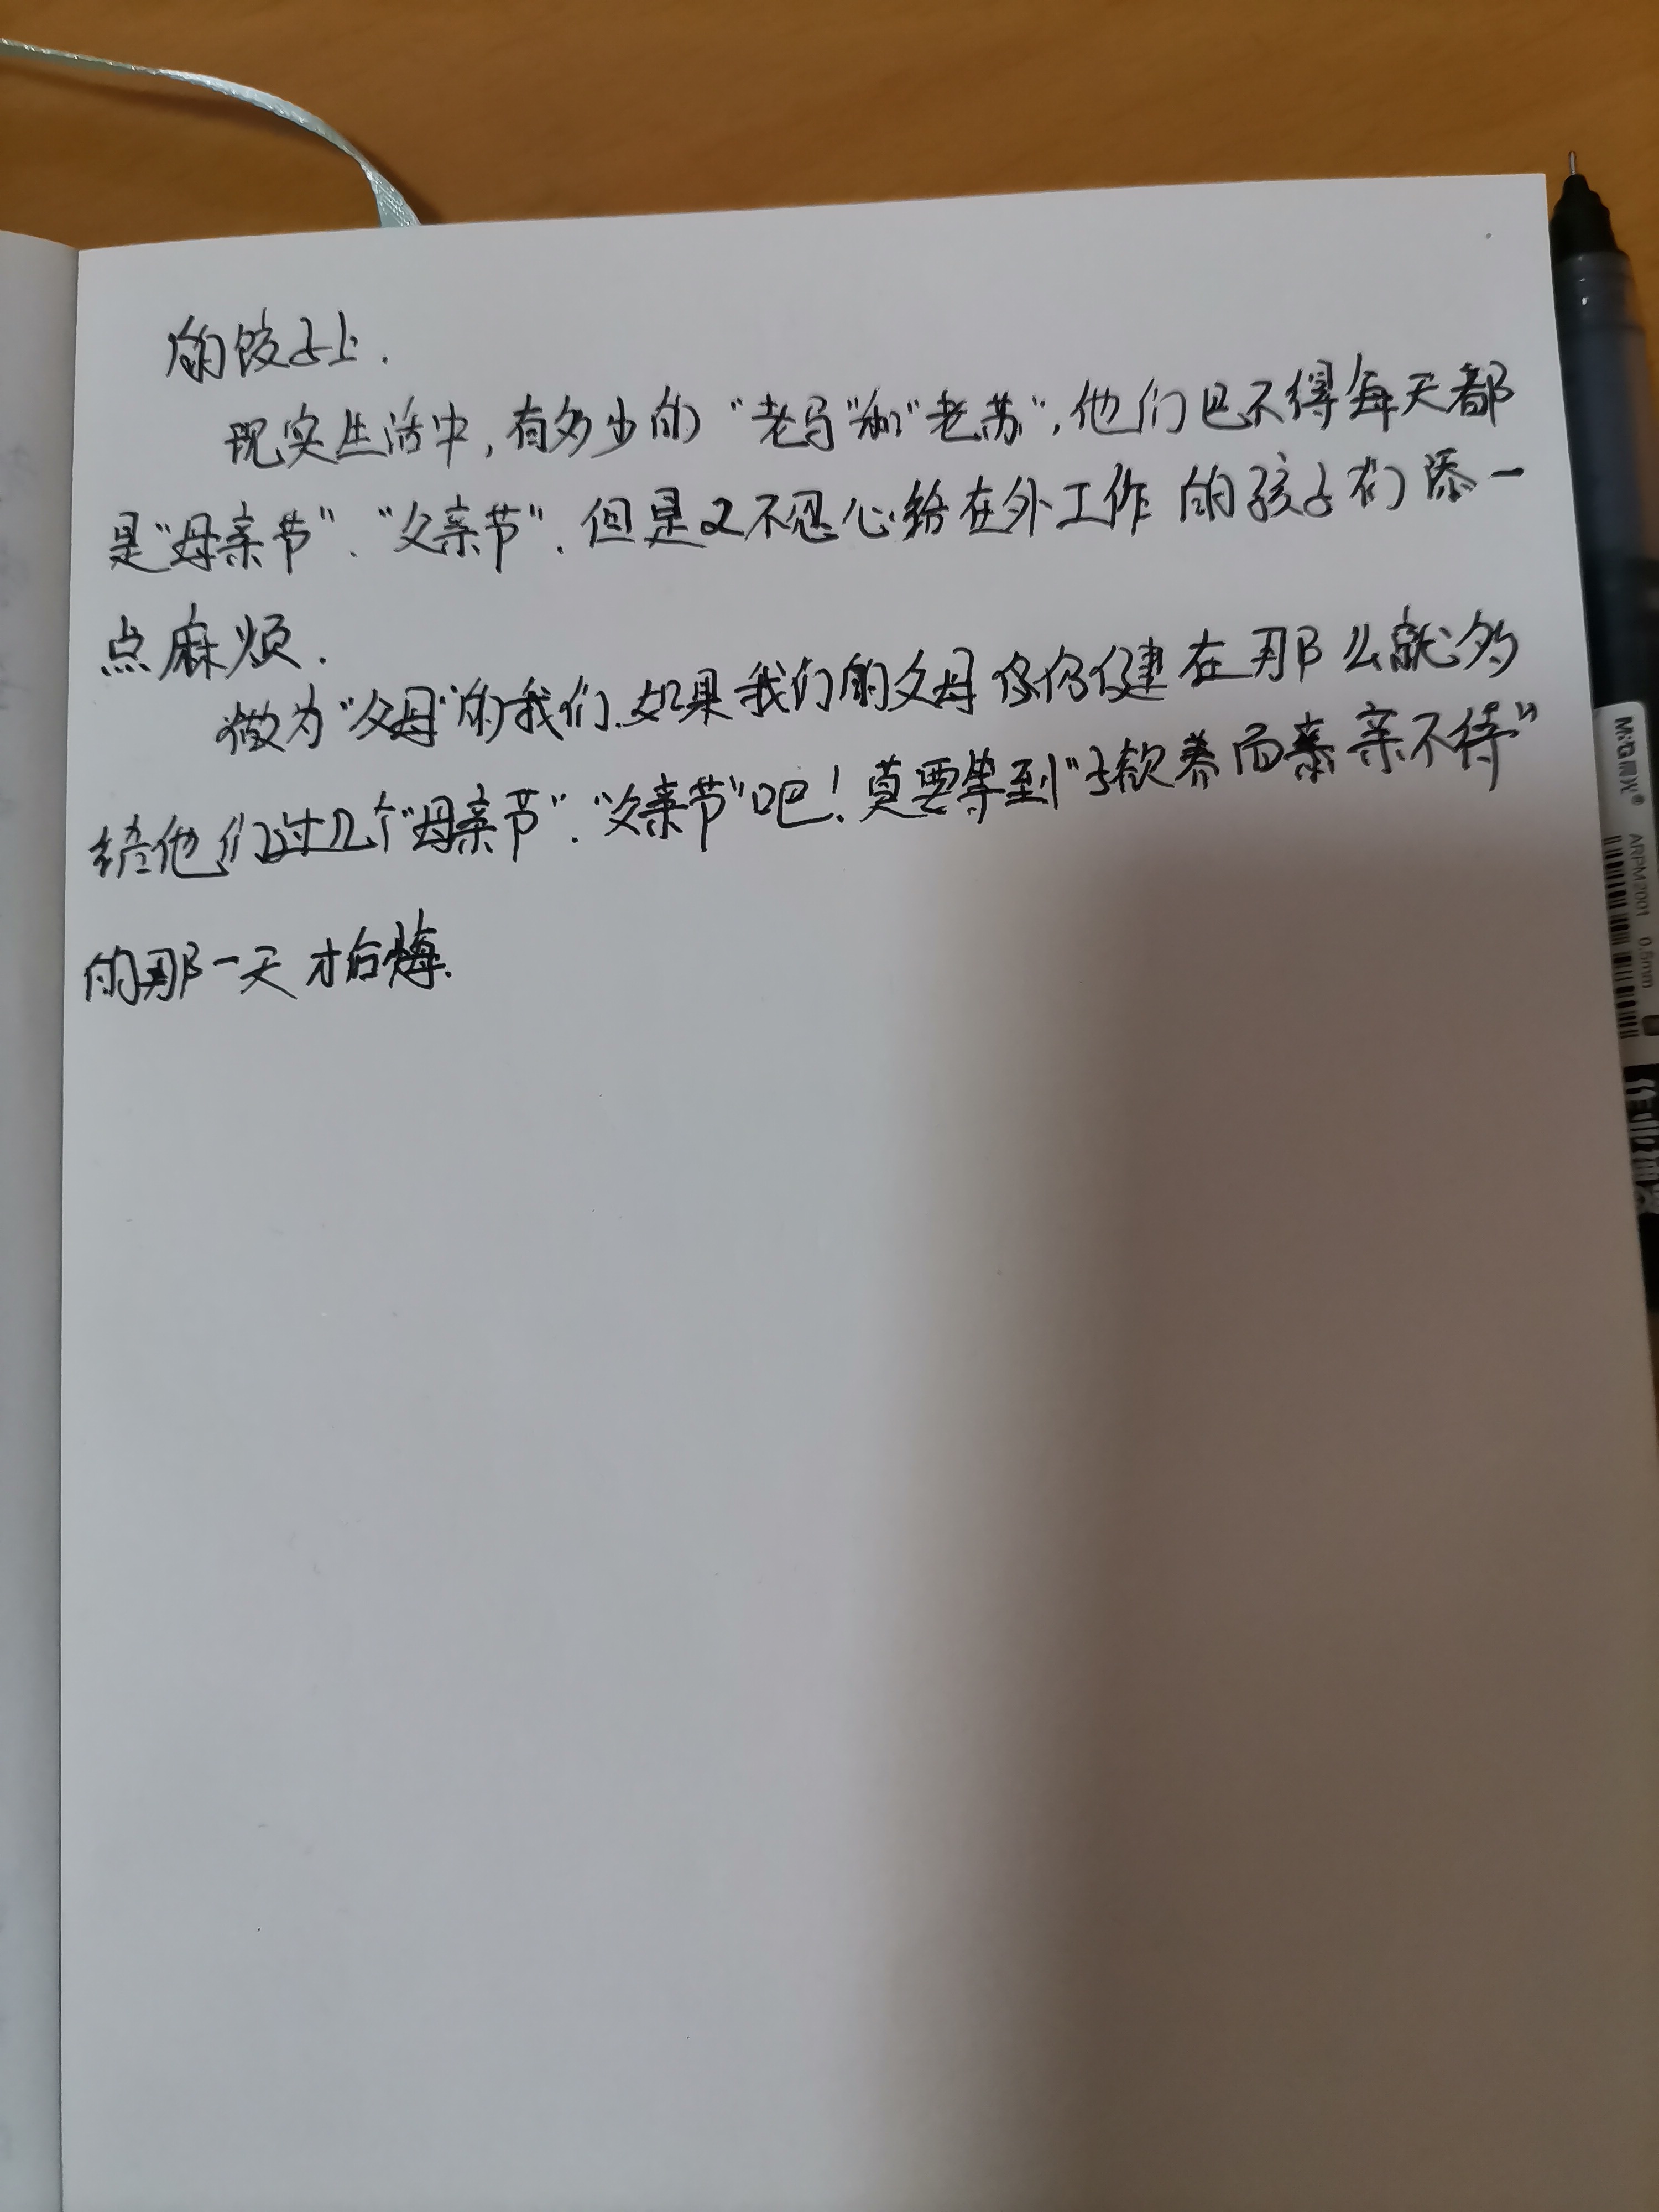 的饺子上.
现实生活中,有多少的“老马”和“老苏”,他们巴不得每天都
是“母亲节”.“父亲节”.但是又不忍心给在外工作的孩子们添一
点麻烦.
做为“父母”的我们.如果我们的父母健在那么就多
给他们过几个“母亲节”.“父亲节”吧!莫要等到“子欲养而亲不待”
的那一天才后悔.
M&G晨光®
ARPM2001 0.5mm